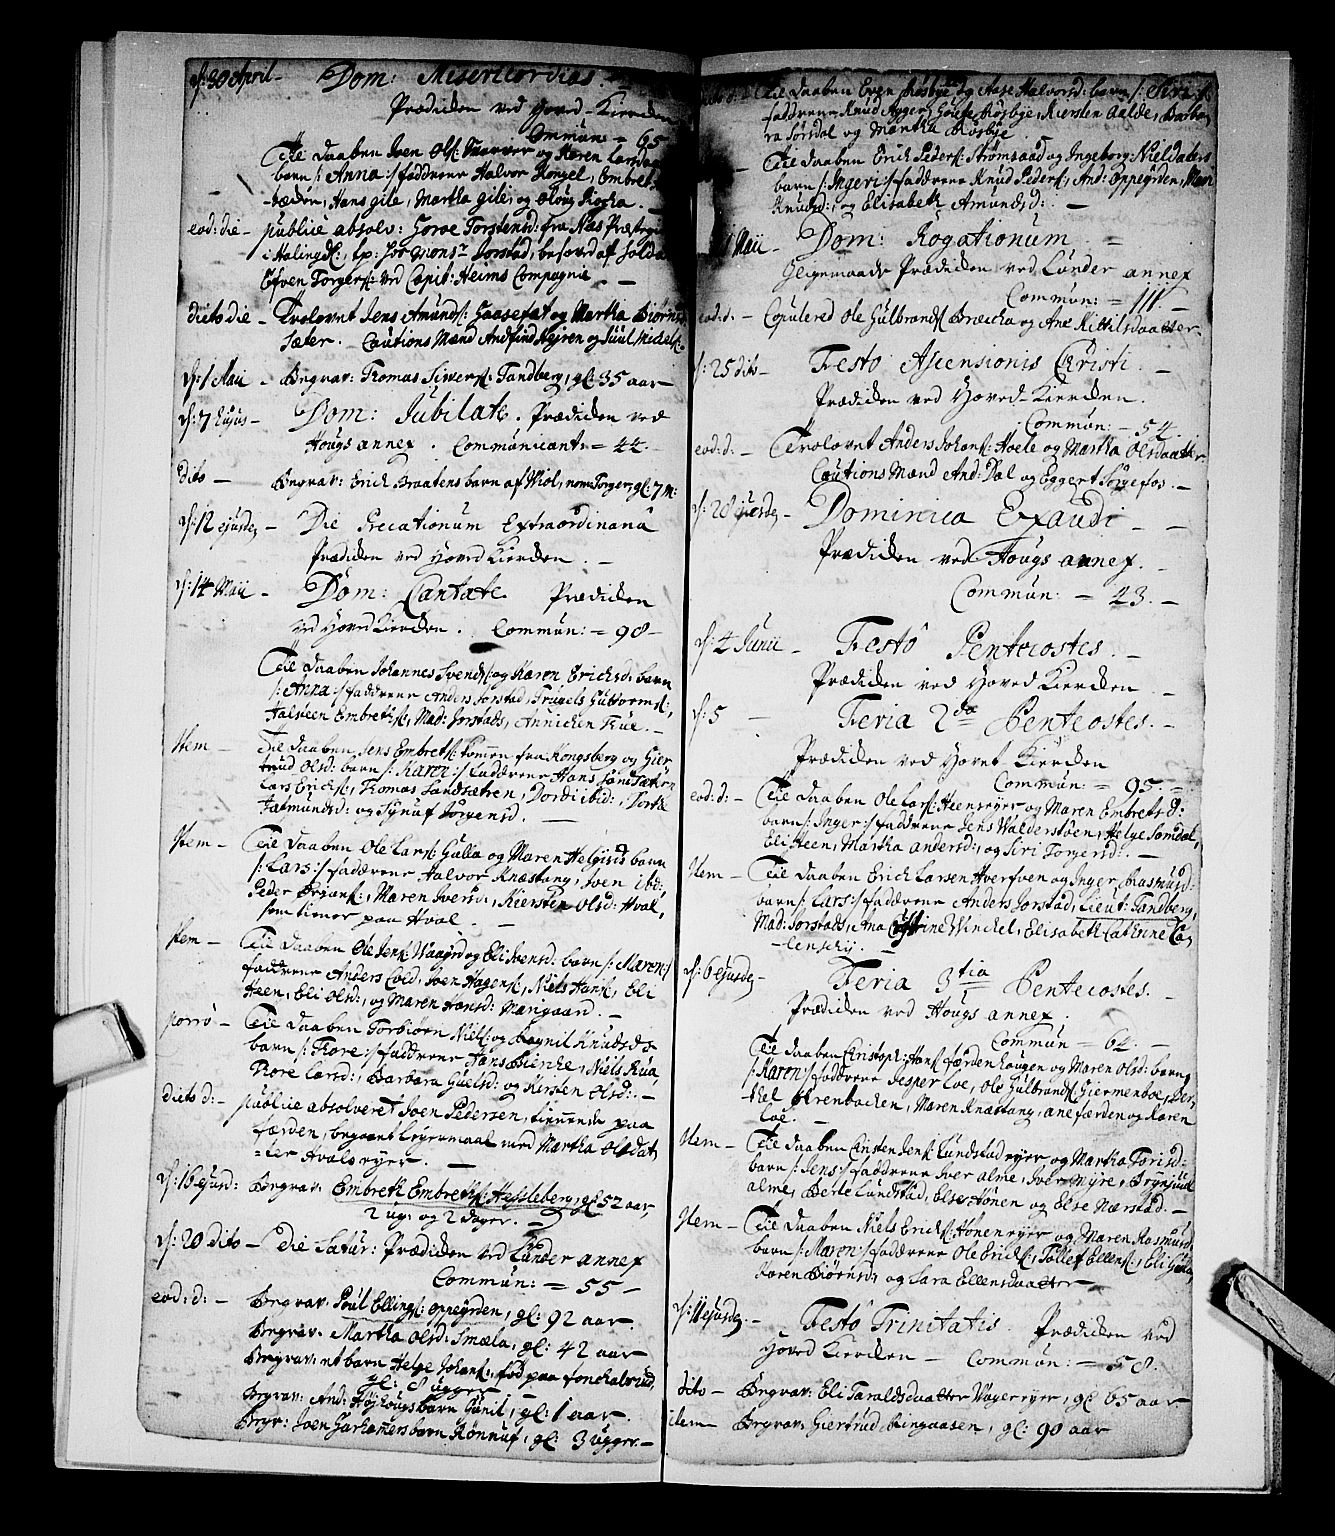 d: 30 April – Dom: Misericordias.
Prædiken ved Hoved-Kierken
Commun: = 65
Item daaben Iven Ols: og Karen Larsdaa
barn /: Anna :/ faddrene Halvor Kongel, Embret
Hans gile, Martha gile, og Oloug Kogha. –
eod: die – publice absolv: Goroe Torstensd: fra Næs Præstegi
i Halingd:, tp: hos Mons: Jorstad, besovet af Solda
Efven Torgers: ved Capit: Heims Compagnie –
dicto die – Trolovet Jens Amunds: Gaasefat og Martha Biørnsd
Sæter. Cautions Mænd Andfind Hejren og Juul Michels:
d: 1 Maii – Begrav: Thomas Siwers: Tandberg, gl: 35 aar
d: 7 hujus – Dom: Jubilate. Prædiken ved
Hougs annex. Communicant: = 44. –
dito – Begrav: Erich Braatens barn af Wiol, nom: Torger, gl: 7 M:
d: 12 ejusdem – Die Precationum Extraordinaria
Prædiken ved Hoved Kierken. –
d: 14 Maii – Dom: Cantate Prædiken
ved Hoved Kierken. Commun: = 98 –
Item daaben Johannes Svends: og Karen Erichsd: barn
/: Anna :/ faddrene Anders Jorstad, Truuels Guttorms:,
Halsteen Embrets:, Mad: Jorstads, Annichen Rue. –
Item – Item daaben Jens Embrets: kommen fra Kongsberg og Gier
trud Olsd: barn /: Karen :/ faddrene Hans Sandsætren
Lars Erichs:, Thomas Sandsætren, Dordi ibid:,
Halmunds: og Synuf Jørgensd. –
Item – Item daaben Ole Lars: Gulla og Maren Helgesd: barn
/: Lars :/ faddrene Halvor Knæstang, Iven ibd:,
Peder Brgans:, Maren Iversd:, Kiersten Olsd: Hval,
som tiener paa Hval. –
Item – Item daaben Ole Jens: Waager og Eli Svensd: barn /: Maren :/
faddrene Anders Cold, Iven Hagens:, Niels Hans:, Eli
Heen, Eli Olsd:, og Maren Hansd: Mærigaard. –
porro – Item daaben Torbiørn Niels: og Ragnil Knudsd:
barn /: Thore :/ faddrene Hans Bierke, Niels Rua
Thore Larsd:, Barbara Gulsd: og Kirsten Olsd: –
dicto d: – publice absolveret Iven Pedersen, tienende paa
færden, begaaet Leyermaal med Martha Olsdat
=ter Hvals eyer. –
d: 16 ejusd: Begrav: Embreth Embreths: Hessleberg, gl: 52 aar,
2 ug: og 2 dager. –
d: 20 dito – Die Satur: Prædiken ved Lunder annex
Commun: = 55 –
eod: d: – Begrav: Poul Ellings: Oppegrden, gl: 92 aar.
Begrav: Martha Olsd: Smæla, gl: 42 aar
Begrav: et barn Helge Johans:, fød paa fonchalsrud,
gl: 8 ugger –
Begrav: And: Højhougs barn Gunil, gl: 1 aar.
Begr: Iven Harhomers barn Rønnuf, gl: 3 ugger. –
Item daaben Even Røsbye og Aase Halvorsd: barn /: Siri :/
faddrene Knud Ager, Goufe Røsbye, Kiersten Aalde, Barba
ra Sørsdal og Martha Røsbye. –
Item daaben Erich Peders: Strømsaad og Ingeborg Nielsdaaters
barn /: Ingeri :/ faddrene Knud Peders:, And: Oppegrden, Mari
Knudsd:, og Elisabeth Amundsd: –
Maii – Dom: Rogationum =
Gleigemaade Prædiken ved Lunder annex
Commun: = 111 –
eod: d: – Copulered Ole Gulbrands: Bræcka og Ane Kittilsdaatter
d: 25 dito – Festo Ascensionis Christi. –
Prædiken ved Hoved Kierken.
Commun: – 54.
eod: d: – Trolovet Anders Johans: Hoele og Martha Olsdaatter.
Cautions Mænd And: Dal og Eggert Sørgefos. –
d: 28 ejusdem – Dominica Exaudi –
Prædiken ved Hougs annex. –
Commun: = 43. –
d: 4 Junii – Festo Pentecostes. –
Prædiken ved Hoved Kierken. –
d: 5 – Feria 2da Pentecostes. –
Prædiken ved Hovet Kierken
Commun: = 95. =
eod: d: – Item daaben Ole Lars: Heens eyer og Maren Embretsd:
barn /: Inger :/ faddrene Jens Walderstöen, Helge Somdal,
Eli Heen, Martha Andersd:, og Siri Torgersd: –
Item – Item daaben Erich Larsen Hverfven og Inger Rasmusd:
barn /: Lars :/ faddrene Anders Jorstad, Lieut: Tandberg,
Mad: Jorstads, Ana Cathrine Winckel, Elisabeth Cathrine Co
=lenschij. –
d: 6 ejusdem – Feria 3tia Pentecostes. –
Prædiken ved Hougs annex.
Commun = 64. –
Item daaben Christoph: Hans: færdenhaugen og Maren Olsd: barn
/: Karen :/ faddrene Jesper Loe, Ole Gulbrands: Giermenboe, Ber
thel Ehrenbachen, Maren Knæstang, Ane færden og Karen
Loe. –
Item – Item daaben Cristen Jens: Lundstad eyer og Martha Torisd:
barn /: Jens :/ faddrene Iver Alme, Iver Myre, Brynjuld
Alme, Berte Lundstad, Else Hönen og Else Nærstad. –
Item – Item daaben Niels Erichs: Hönen eyer og Maren Rasmusd:
barn /: Maren :/ faddrene Ole Erichs:, Tollef Ellens:, Eli
Karen Biørnsd: og Sara Ellensdaatter –
d: 11 ejusdem. – Festo Trinitatis. Prædiken ved
Hoved Kierken – Commun: = 58.
dito – Begrav: Eli Taraldsdaatter Wager eyer, gl: 65 aar
item – Begrav: Giertrud Ringaasen, gl: 90 aar